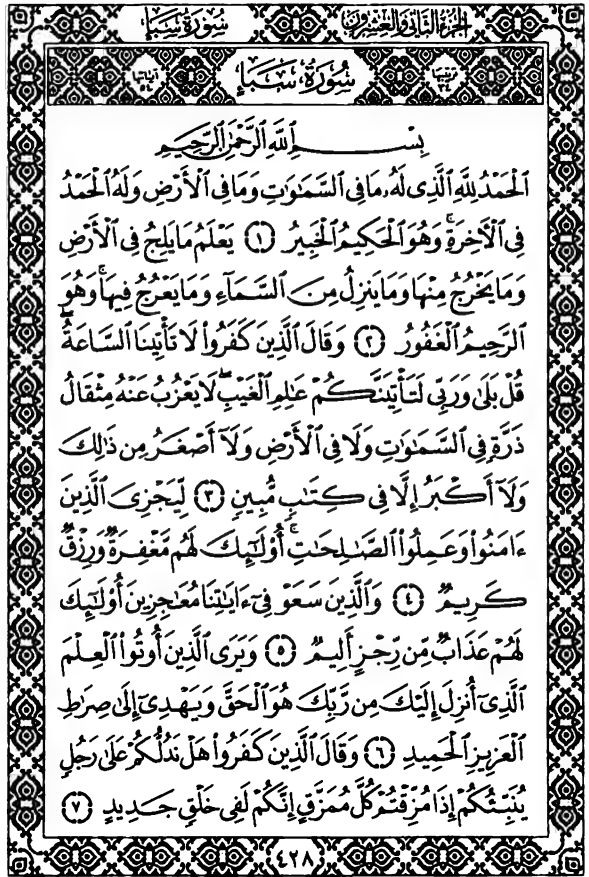 سُورَةُ سَبَإٍ
الجُزءُ الثَّانِي وَالعِشْرُونَ
ترتيبها ٣٤
سُورَةُ سَبَإٍ
آياتها ٥٤
بِسْمِ ٱللَّهِ ٱلرَّحْمَٰنِ ٱلرَّحِيمِ
ٱلْحَمْدُ لِلَّهِ ٱلَّذِى لَهُۥ مَا فِى ٱلسَّمَٰوَٰتِ وَمَا فِى ٱلْأَرْضِ وَلَهُ ٱلْحَمْدُ
فِى ٱلْأَخِرَةِۚ وَهُوَ ٱلْحَكِيمُ ٱلْخَبِيرُ ١ يَعْلَمُ مَا يَلِجُ فِى ٱلْأَرْضِ
وَمَا يَخْرُجُ مِنْهَا وَمَا يَنزِلُ مِنَ ٱلسَّمَآءِ وَمَا يَعْرُجُ فِيهَاۚ وَهُوَ
ٱلرَّحِيمُ ٱلْغَفُورُ ٢ وَقَالَ ٱلَّذِينَ كَفَرُوا۟ لَا تَأْتِينَا ٱلسَّاعَةُۖ
قُلْ بَلَىٰ وَرَبِّى لَتَأْتِيَنَّكُمْ عَٰلِمِ ٱلْغَيْبِۖ لَا يَعْزُبُ عَنْهُ مِثْقَالُ
ذَرَّةٍ فِى ٱلسَّمَٰوَٰتِ وَلَا فِى ٱلْأَرْضِ وَلَآ أَصْغَرُ مِن ذَٰلِكَ
وَلَآ أَكْبَرُ إِلَّا فِى كِتَٰبٍ مُّبِينٍ ٣ لِّيَجْزِىَ ٱلَّذِينَ
ءَامَنُوا۟ وَعَمِلُوا۟ ٱلصَّٰلِحَٰتِۚ أُو۟لَٰٓئِكَ لَهُم مَّغْفِرَةٌ وَرِزْقٌ
كَرِيمٌ ٤ وَٱلَّذِينَ سَعَوْ فِىٓ ءَايَٰتِنَا مُعَٰجِزِينَ أُو۟لَٰٓئِكَ
لَهُمْ عَذَابٌ مِّن رِّجْزٍ أَلِيمٌ ٥ وَيَرَى ٱلَّذِينَ أُوتُوا۟ ٱلْعِلْمَ
ٱلَّذِىٓ أُنزِلَ إِلَيْكَ مِن رَّبِّكَ هُوَ ٱلْحَقَّ وَيَهْدِىٓ إِلَىٰ صِرَٰطِ
ٱلْعَزِيزِ ٱلْحَمِيدِ ٦ وَقَالَ ٱلَّذِينَ كَفَرُوا۟ هَلْ نَدُلُّكُمْ عَلَىٰ رَجُلٍ
يُنَبِّئُكُمْ إِذَا مُزِّقْتُمْ كُلَّ مُمَزَّقٍ إِنَّكُمْ لَفِى خَلْقٍ جَدِيدٍ ٧
٤٢٨